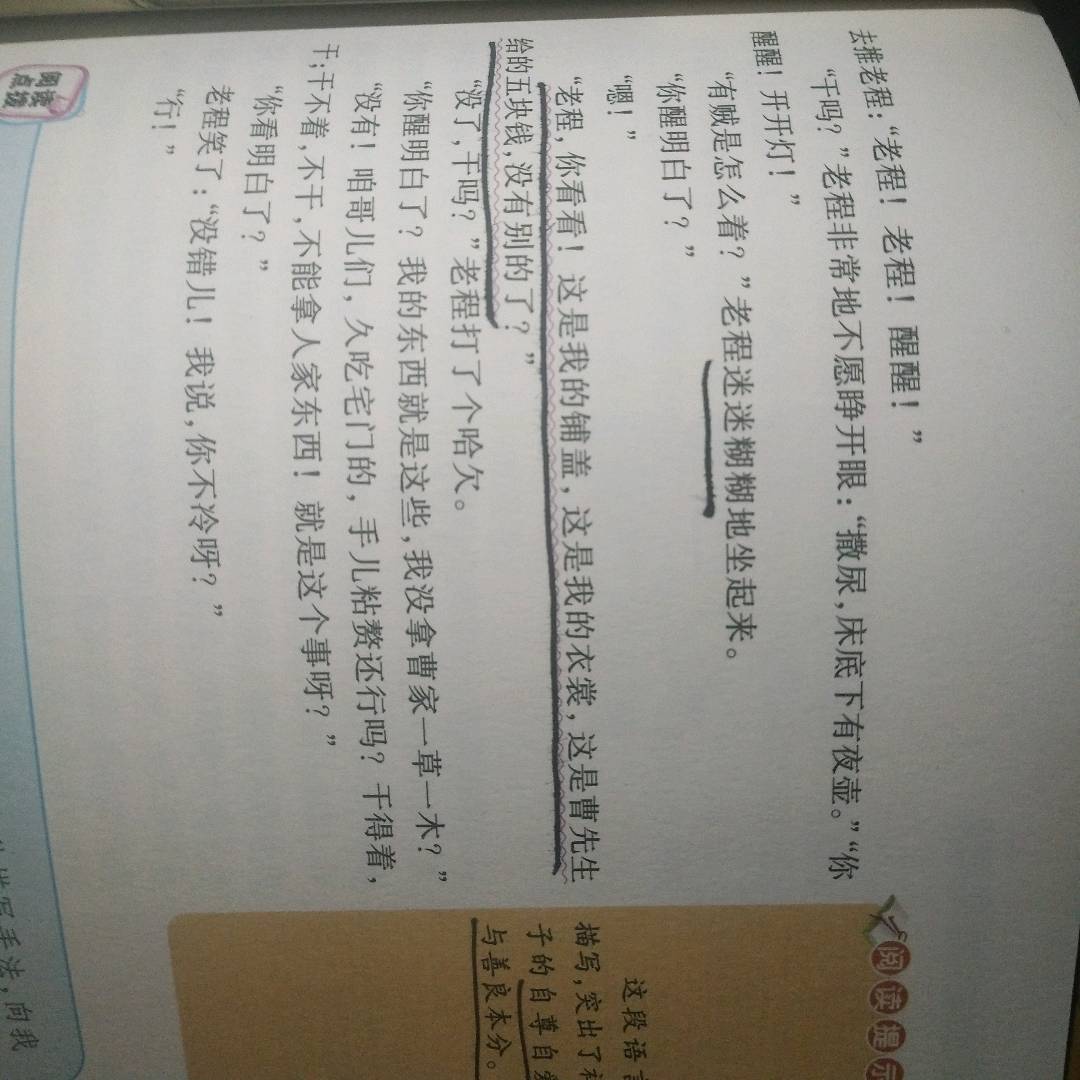 去推老程：“老程！老程！醒醒！”
“干吗？”老程非常地不愿睁开眼：“撒尿，床底下有夜壶。”“你
醒醒！开开灯！”
“有贼是怎么着？”老程迷迷糊糊地坐起来。
“你醒明白了？”
“嗯！”
“老程，你看看！这是我的铺盖，这是我的衣裳，这是曹先生
给的五块钱，没有别的了？”
“没了，干吗？”老程打了个哈欠。
“你醒明白了？我的东西就是这些，我没拿曹家一草一木？”
“没有！咱哥儿们，久吃宅门的，手儿粘赘还行吗？干得着，
干；干不着，不干，不能拿人家东西！就是这个事呀？”
“你看明白了？”
老程笑了：“没错儿！我说，你不冷呀？”
“行！”
阅读提示
这段语言
描写，突出了祥
子的自尊自爱
与善良本分。
阅读
点拨
描写手法，向我